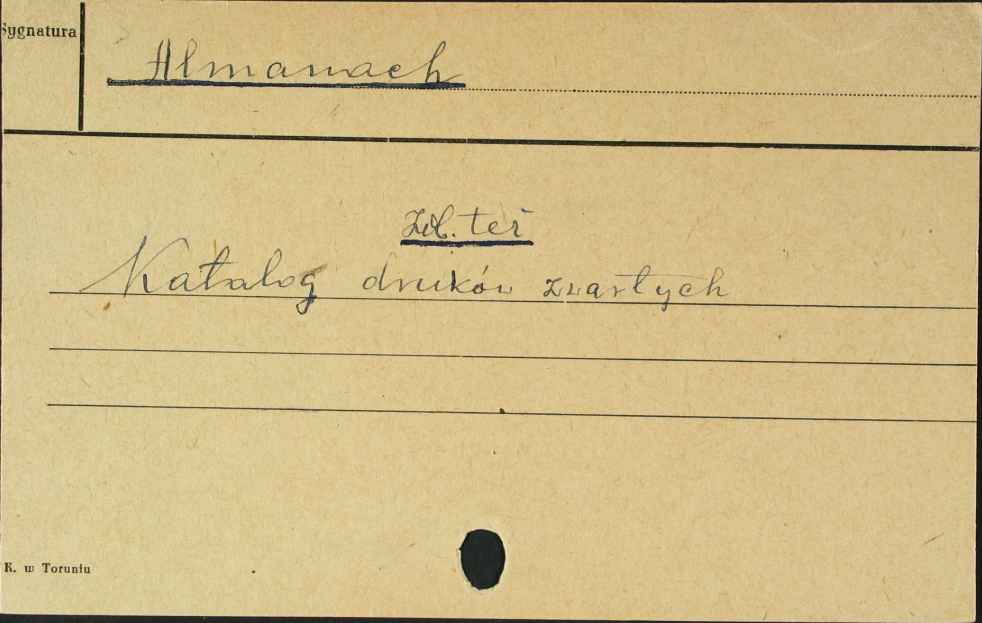 Sygnatura
Almanach
zob. też
Katalog druków zwartych
K. w Toruniu